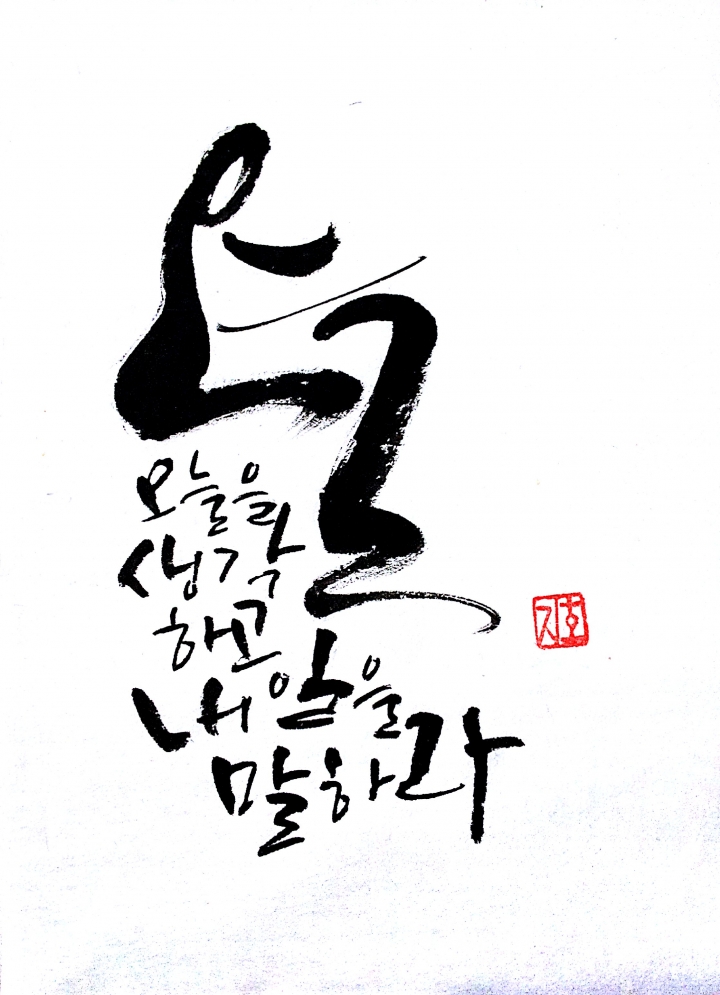 오늘
오늘을
생각
하고
내일을
말하라
지호